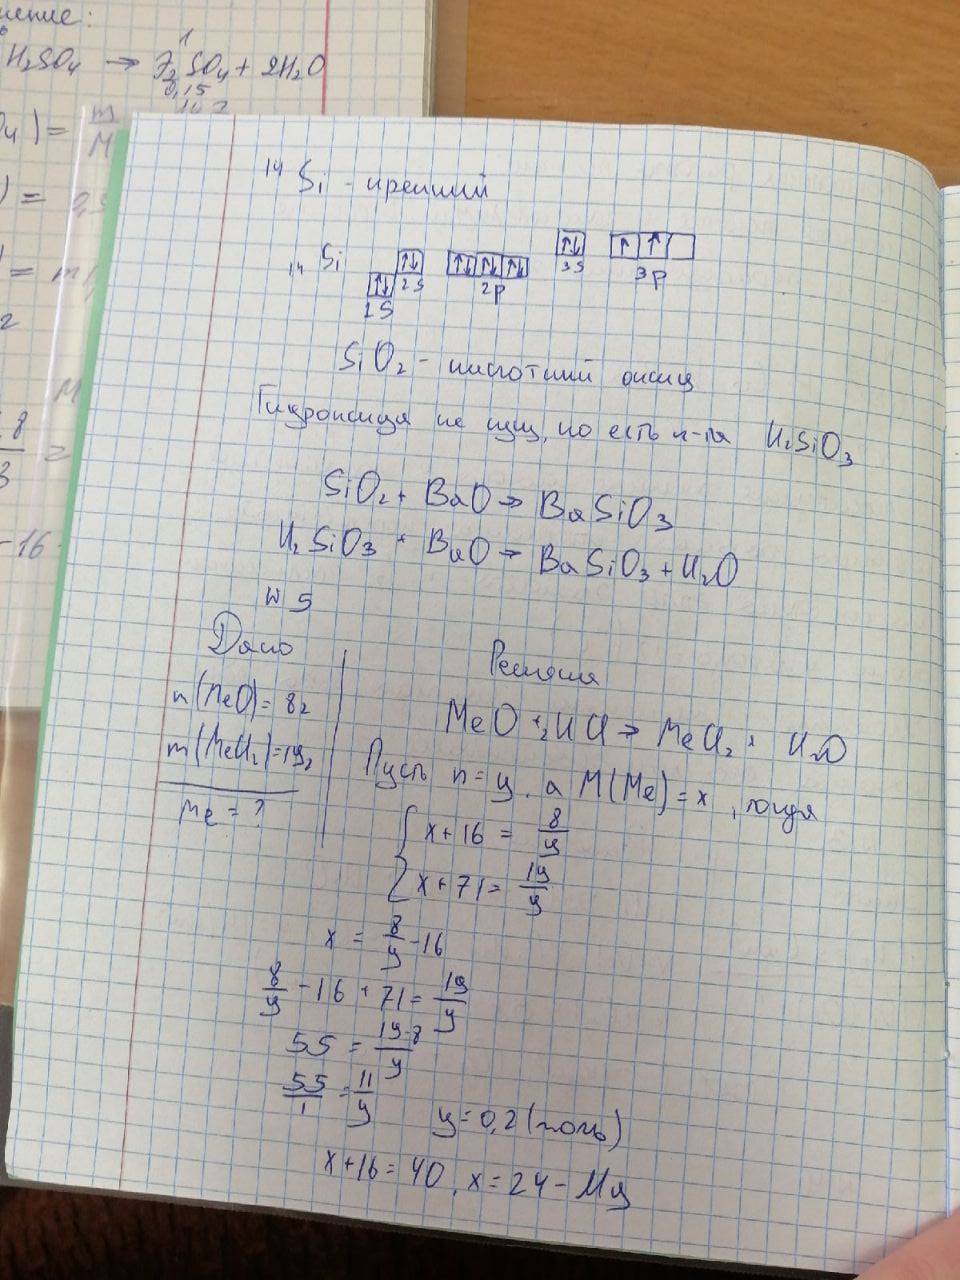 H₂SO₄ → SO₄ + 2H₂O
0,15
m
M
14 Si - кремний
14 Si
↑↓ 1S ↑↓ 2S ↑↓ ↑↓ ↑↓ 2p ↑↓ 3S ↑ ↑ 3p
SiO₂ - кислотный оксид
Гидроксида не сущ, но есть к-та H₂SiO₃
SiO₂ + BaO → BaSiO₃
H₂SiO₃ + BaO → BaSiO₃ + H₂O
N 5
Дано
m(MeO) = 8г
m(MeCl₂) = 19г
Me = ?
Решение
MeO + 2HCl → MeCl₂ + H₂O
Пусть n = y, а M(Me) = x, тогда
{ x + 16 = 8/y
x + 71 = 19/y
x = 8/y - 16
8/y - 16 + 71 = 19/y
55 = 19-8/y
55/1 = 11/y
y = 0,2 (моль)
x + 16 = 40, x = 24 - Mg